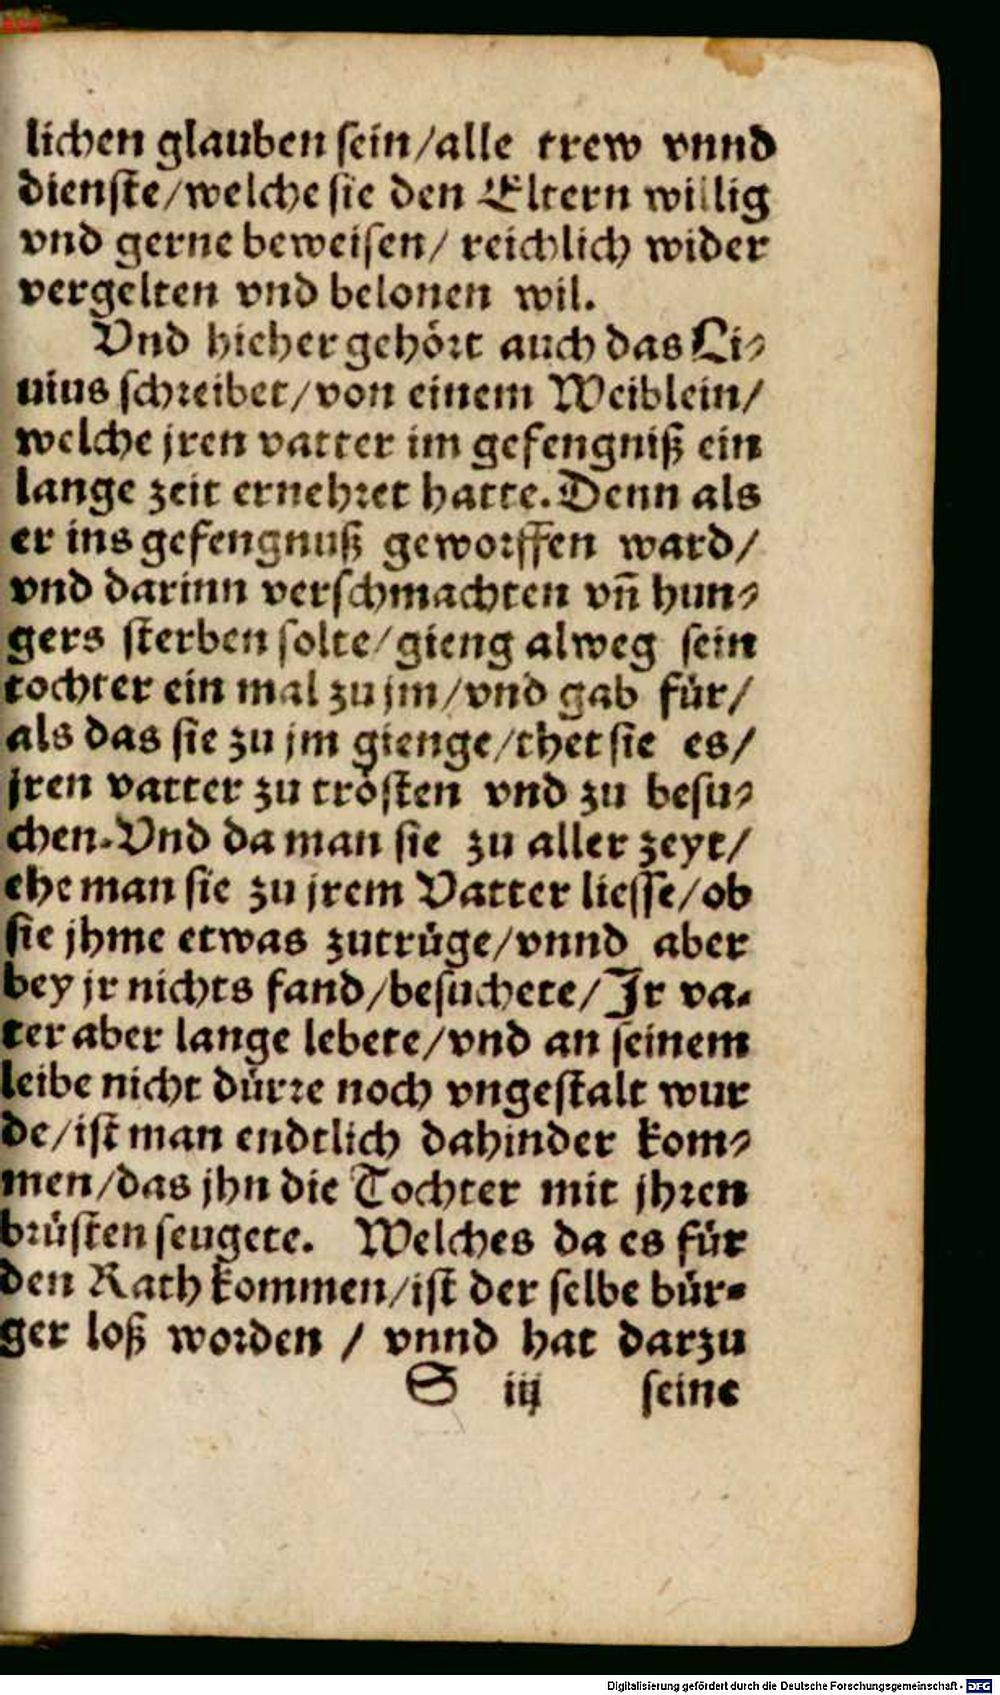 lichen glauben sein/alle trew vnnd
dienste/welche sie den Eltern willig
vnd gerne beweisen/ reichlich wider
vergelten vnd belonen wil.
Vnd hieher gehört auch das Li-
uius schreibet/von einem Weiblein/
welche jren vatter im gefengniß ein
lange zeit ernehret hatte. Denn als
er ins gefengnuß geworffen ward/
vnd darinn verschmachten vñ hun-
gers sterben solte/gieng alweg sein
tochter ein mal zu jm/vnd gab für/
als das sie zu jm gienge/thet sie es/
jren vatter zu trösten vnd zu besu-
chen. Vnd da man sie zu aller zeyt/
ehe man sie zu jrem Vatter liesse/ob
sie jhme etwas zutrüge/vnnd aber
bey jr nichts fand/besuchete/Jr va-
ter aber lange lebete/vnd an seinem
leibe nicht dürre noch vngestalt wur
de/ist man endtlich dahinder kom-
men/das jhn die Tochter mit jhren
brüsten seugete. Welches da es für
den Rath kommen/ist der selbe bür-
ger loß worden / vnnd hat darzu
S iij seine
Digitalisierung gefördert durch die Deutsche Forschungsgemeinschaft - DFG